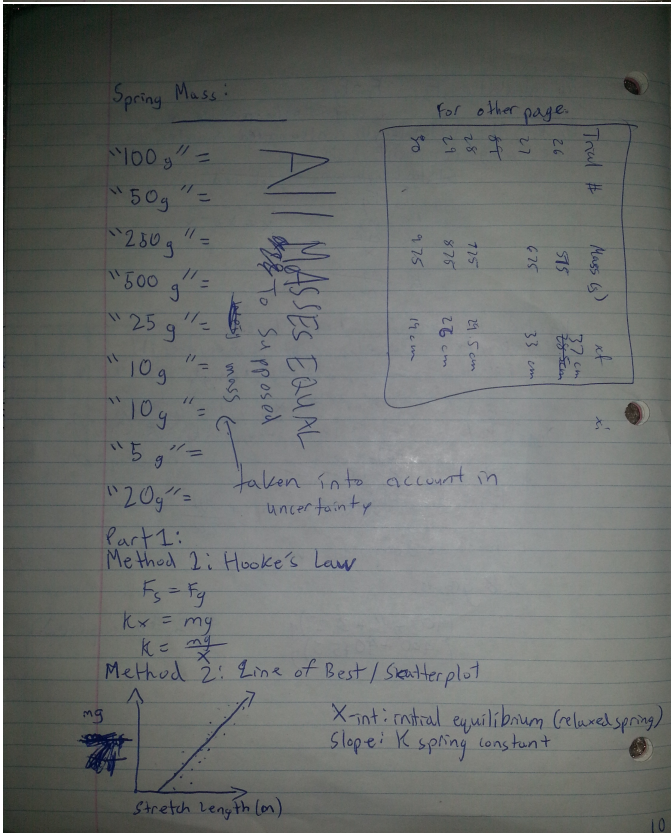 Spring Mass:
"100g"=
"50g"=
"250g"=
"500g"=
"25g"=
"10g"=
"10g"=
"5g"=
"20g"=
All MASSES EQUAL
To supposed
mass
taken into account in
uncertainty
For other page.
Trial # Mass (g) xf xi
26 575 37 cm
27 675 33 cm
28 775 29.5 cm
29 875 26 cm
30 975 19 cm
Part 1:
Method 1: Hooke's Law
Fs = Fg
Kx = mg
K = mg/x
Method 2: Line of Best / Skatterplot
mg
Stretch Length (cm)
X-int: initial equilibrium (relaxed spring)
Slope: K spring constant
10